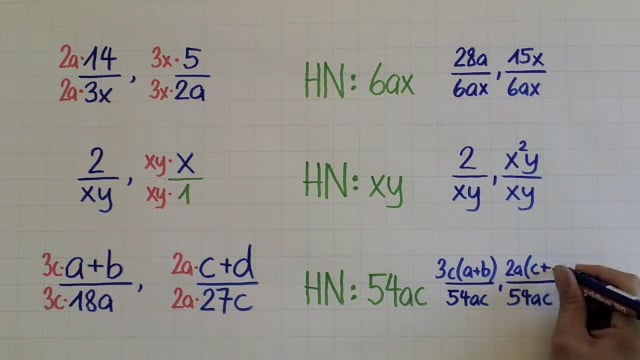 2a·14/2a·3x , 3x·5/3x·2a HN: 6ax 28a/6ax , 15x/6ax
2/xy , xy·x/xy·1 HN: xy 2/xy , x²y/xy
3c·a+b/3c·18a , 2a·c+d/2a·27c HN: 54ac 3c(a+b)/54ac , 2a(c+/54ac